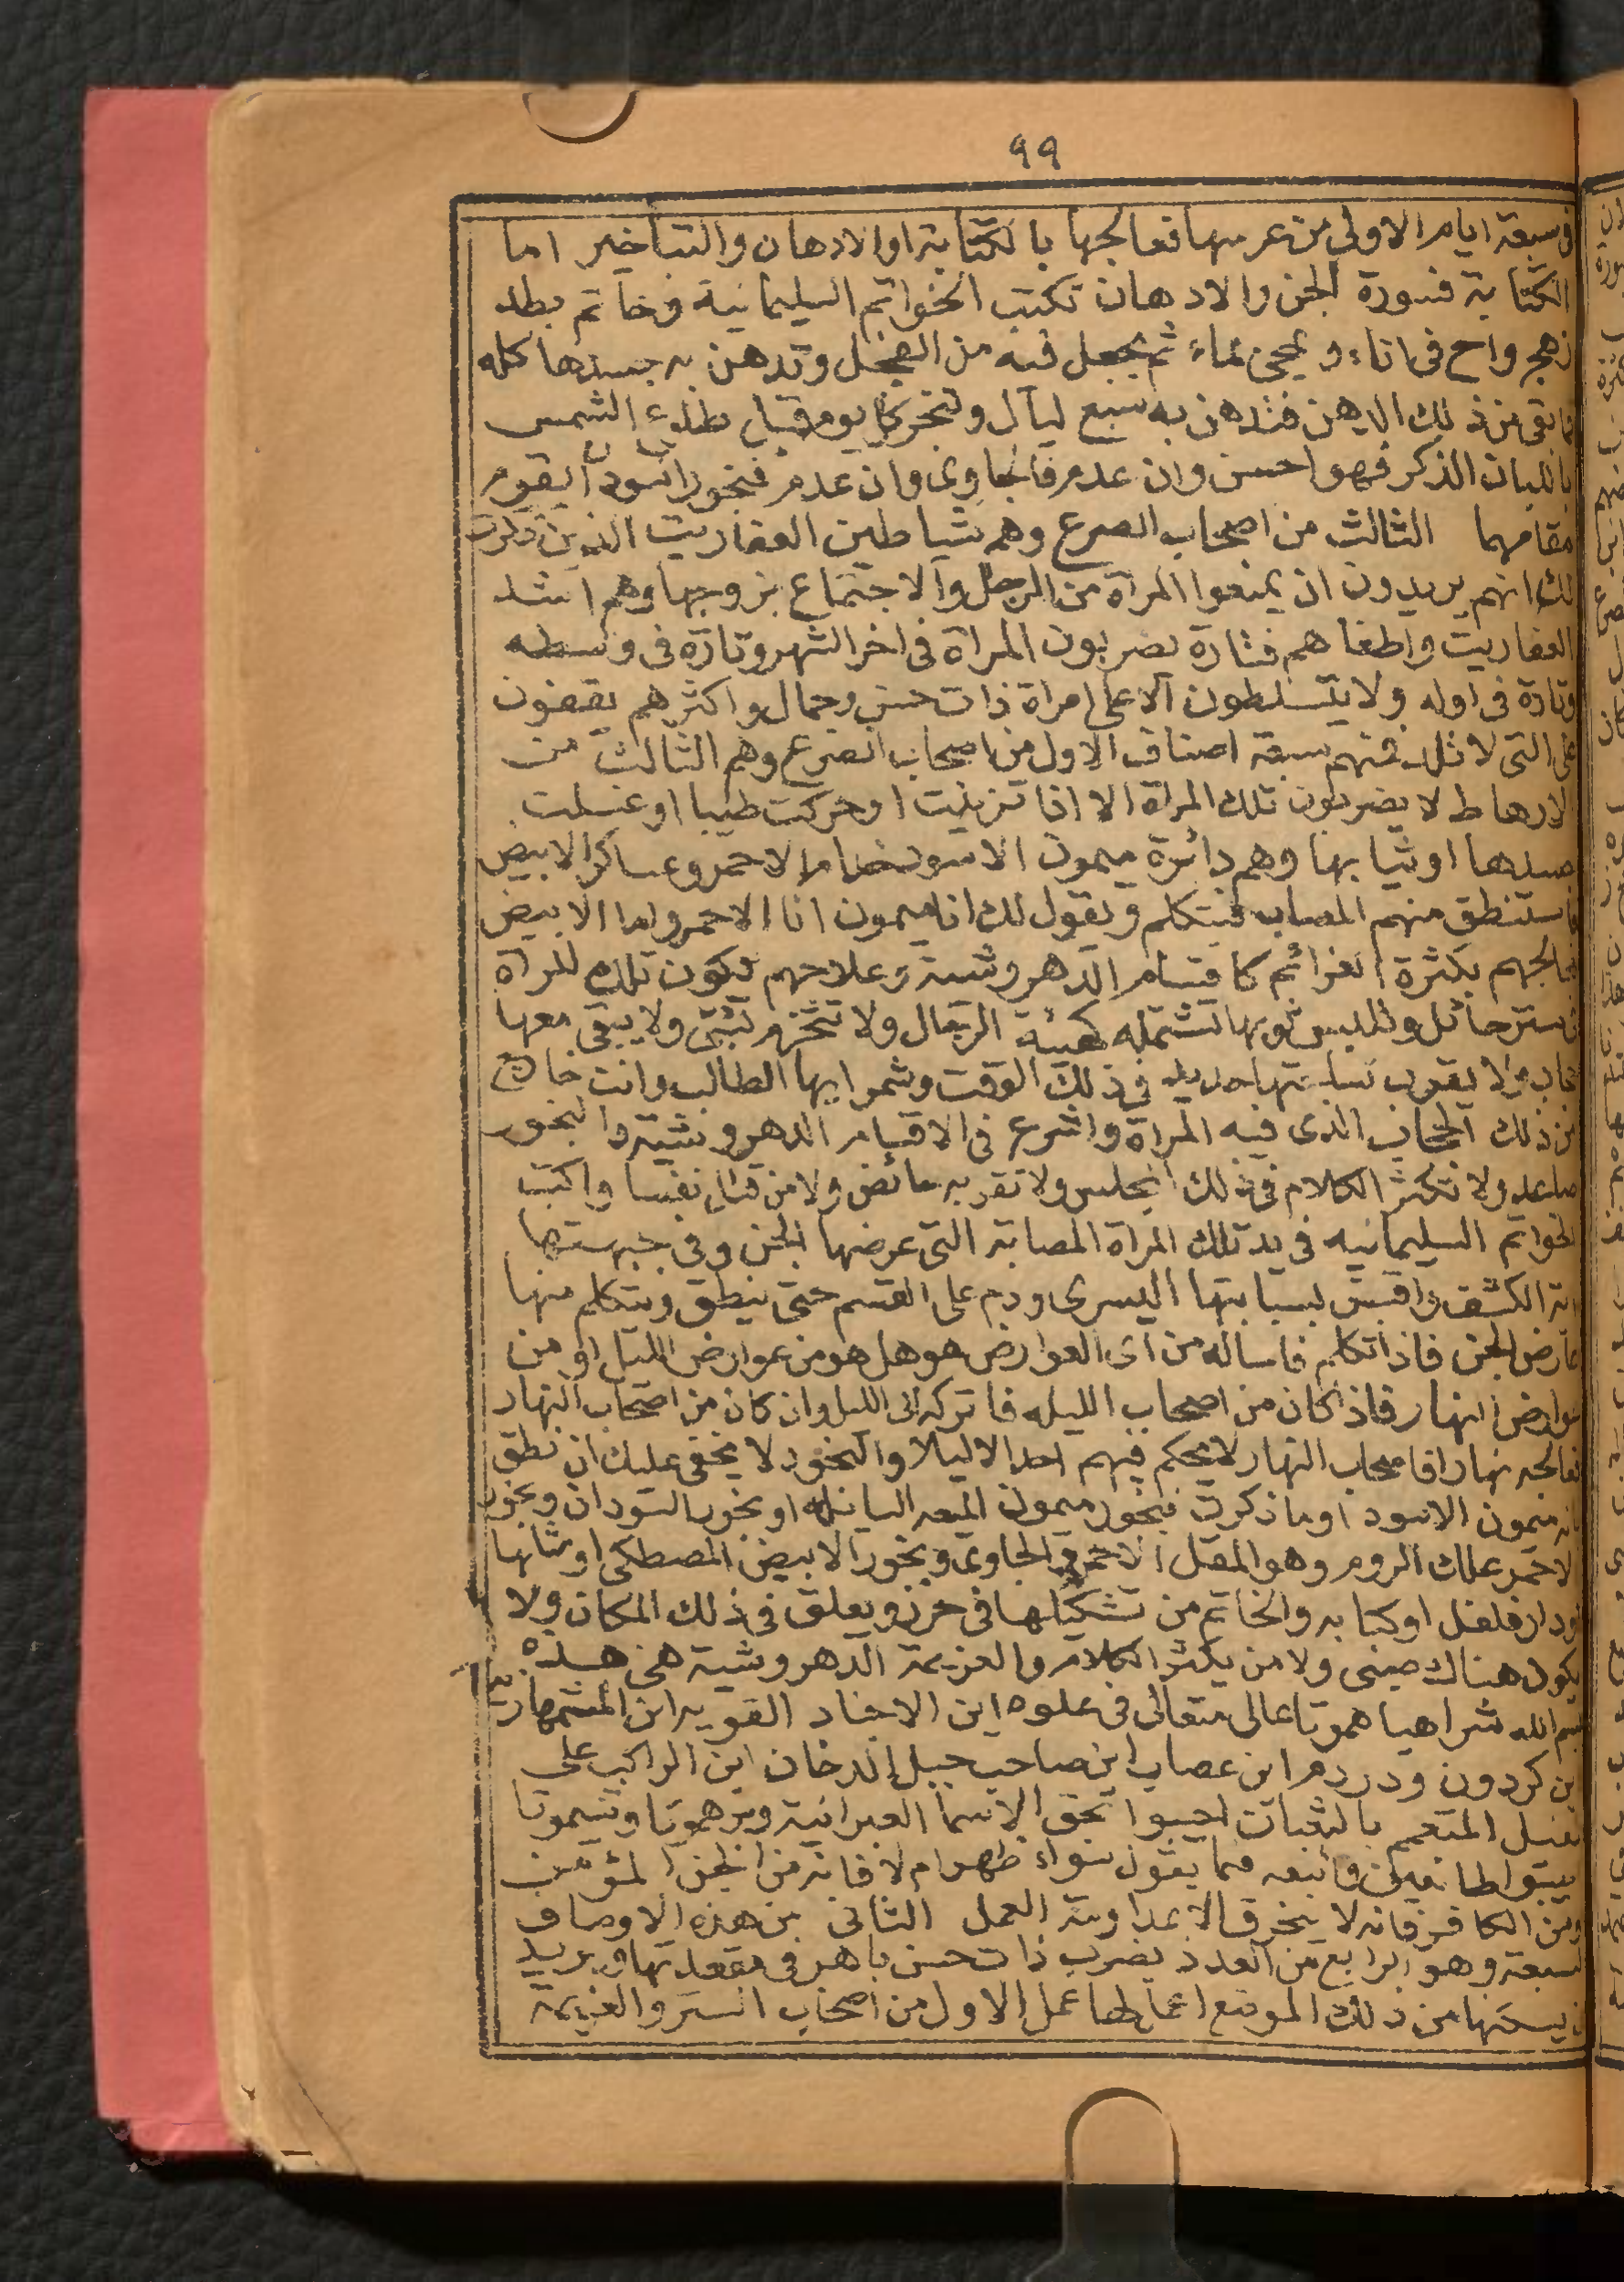 ٩٩
فى سبعة ايام الاولى من عرسها فعالجها بالكتابة او الادهان والتباخير اما
الكتابة فسورة الجن والادهان تكتب الخواتم السليمانية وخاتم بطد
زهج واح فى اناء ويمحى بماء ثم يجعل فيه من الفجل وتدهن به جسدها كله
بقى من ذلك الدهن فتدهن به سبع ليال وتبخر كل يوم قبل طلوع الشمس
باللبان الذكر فهو احسن وان عدم فالجاوى وان عدم فبخور السودان يقوم
مقامهما الثالث من اصحاب الصرع وهم شياطين العفاريت الذين ذكرت
لك انهم يريدون ان يمنعوا المرأة من الرجل والاجتماع بزوجها وهم اشد
العفاريت واطغاهم فتارة يضربون المراة فى اخر الشهر وتارة فى وسطه
وتارة فى اوله ولا يتسلطون الا على امراة ذات حسن وجمال واكثرهم يقفون
على التى لا تلد فمنهم سبعة اصناف الاول من اصحاب الصرع وهم الثالث من
الارهاط لا يضربون تلك المراة الا اذا تزينت او حركت طيبا او غسلت
جسدها او ثيابها وهم دائرة ميمون الاسود الاحمر وعساكر الابيض
فاستنطق منهم المصاب فيتكلم ويقول لك انا ميمون انا الاحمر واما الابيض
فعالجهم بكثرة العزائم كاقسام الدهروشية وعلاجهم تكون تلك المراة
فى ستر حائل وتلبس ثوبها تشتمله كهيئة الرجال ولا تتحزم بشئ ولا يبقى معها
ولا يقرب فى ذلك الوقت الطالب وانت خارج
من ذلك الحجاب الذى فيه المراة واشرع فى الاقسام الدهروشية والبخور
صاعد ولا تكثر الكلام فى ذلك المجلس ولا تقربه حائض ولا من قبل نفسا واكتب
الخواتم السليمانيه فى يد تلك المراة المصابة التى عرضها الجن وفى جبهتها
اية الكشف واقبض بسبابتها اليسرى ودم على القسم حتى ينطق ويتكلم منها
عارض الجن فاذا تكلم فاساله من اى العوارض هو هل هو من عوارض الليل او من
عوارض النهار فاذا كان من اصحاب الليله فاتركه الى الليل وان كان من اصحاب النهار
فعالجه نهارا فاصحاب النهار لا يحكم فيهم احد الا ليلا والبخور لا يخفى عليك ان نطق
بانه ميمون الاسود او ما ذكرت فبخور ميمون الميعه اليابسة او بخور السودان وبخور
الاحمر علك الروم وهو المقل الاحمر والجاوى وبخور الابيض المصطكى او مثالها
ودار فلفل او كبابه والخاتم من تشكيلها فى خرز ويعلق فى ذلك المكان ولا
يكون هناك صبى ولا من يكثر الكلام والعزيمة الدهروشية هى هذه
بسم الله شراهيا هموتا عالى متعالى فى علوه اين الاجناد القويه اين المشمهارين
اين كردون ودردم اين عصاب اين صاحب جبل الدخان اين الراكب على
الفيل المتعمم بالثعبان اجيبوا بحق الاسما العبرانية وبرهموتا وشموتا
اجيبوا طائعين واتبعه فما يقول سواء ظهر ام لا فانه من الجن المؤمن
ومن الكافر فانه لا يحرق الا بعداوة العمل الثانى من هذه الاوصاف
السبعة وهو الرابع من العدد يضرب ذات حسن باهر فى مقعدتها ويريد
ان يسحبها من ذلك الموضع اعمل لها عمل الاول من اصحاب الستر والعزيمة